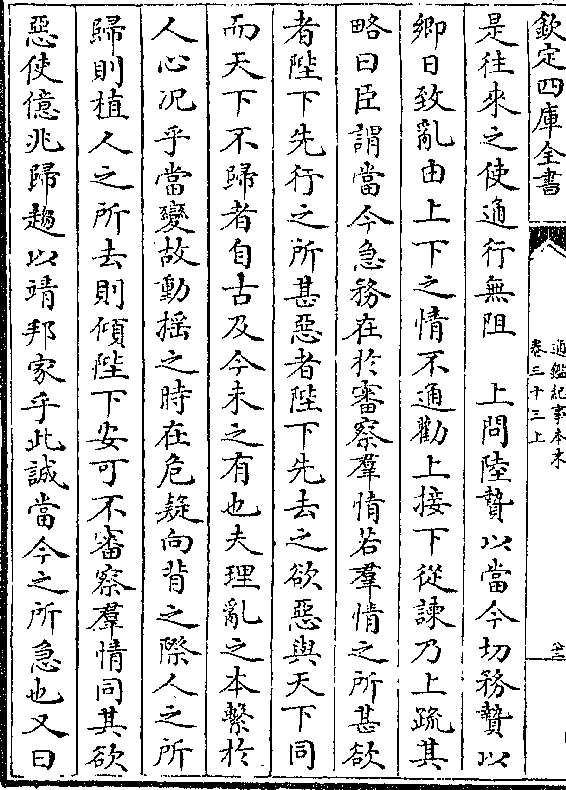 欽定四庫全書
通鑑紀事本末
卷三十三上
是往來之使通行無阻　上問陸贄以當今切務贄以
鄉日致亂由上下之情不通勸上接下從諫乃上疏其
略曰臣謂當今急務在於審察羣情若羣情之所甚欲
者陛下先行之所甚惡者陛下先去之欲惡與天下同
而天下不歸者自古及今未之有也夫理亂之本繫於
人心况乎當變故動揺之時在危疑向背之際人之所
歸則植人之所去則傾陛下安可不審察羣情同其欲
惡使億兆歸趨以靖邦家乎此誠當今之所急也又曰